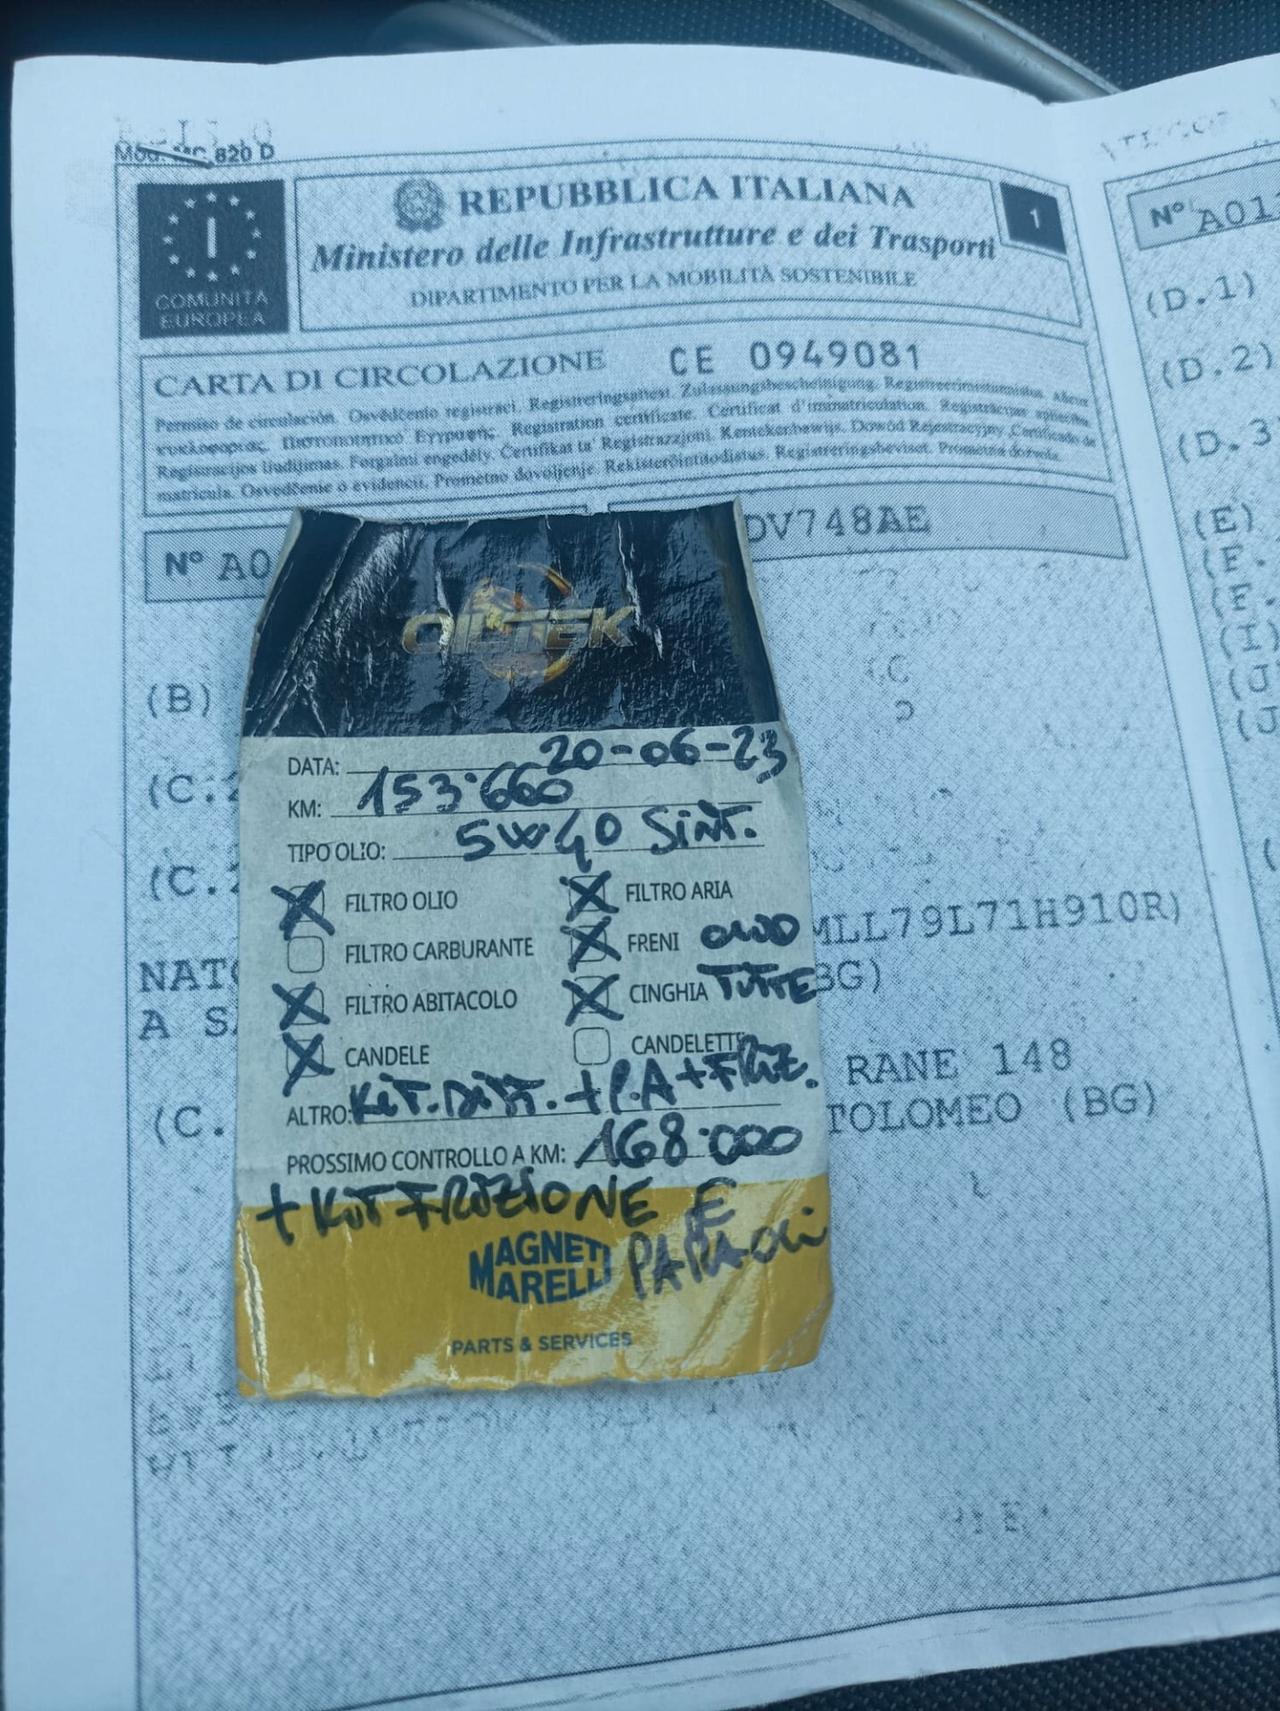 Mod. MC 820 D
REPUBBLICA ITALIANA
Ministero delle Infrastrutture e dei Trasporti
DIPARTIMENTO PER LA MOBILITÀ SOSTENIBILE
1
I
COMUNITÀ
EUROPEA
CARTA DI CIRCOLAZIONE CE 0949081
Permiso de circulación. Osvědčenio registraci. Registreringsattest. Zulassungsbescheinigung.
Registration certificate. Certificat d'immatriculation.
Registracijos liudijimas. Forgalmi engedély. Certifikat ta' Registrazzjoni. Kentekenbewijs. Dowód Rejestracyjny. Certificado de
matricula. Osvedčenie o evidencii. Prometno dovoljenje. Rekisteröintitodistus. Registreringsbeviset. Prometna dozvola.
N° A0
DV748AE
(B)
(C
(C.2
(C.2
MLL79L71H910R)
NATO
BG)
A S
RANE 148
(C.
TOLOMEO (BG)
OILTEK
DATA: 20-06-23
KM: 153.660
TIPO OLIO: 5W40 SINT.
FILTRO OLIO
FILTRO ARIA
FILTRO CARBURANTE
FRENI
FILTRO ABITACOLO
CINGHIA TUTTE
CANDELE
CANDELETTE
ALTRO: KIT.DIST. + P.A + FRIZ.
PROSSIMO CONTROLLO A KM: 168.000
+ KIT FRIZIONE E
PARAOLI
MAGNETI
MARELLI
PARTS & SERVICES
N° A01
(D.1)
(D.2)
(D.3
(E)
(F.
(F.
(I)
(J
(J